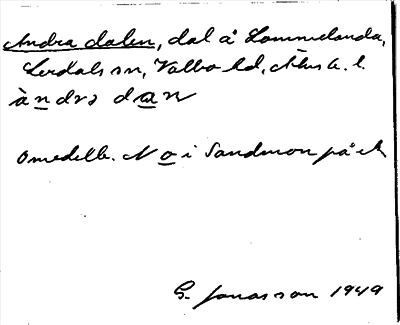 Andra dalen, dal å Lommelanda,
Lerdals sn, Valbo hd, Älvs b. l.
àndrə dan
Omedelb. N o i Sandmon på ek
G. Jonasson 1949